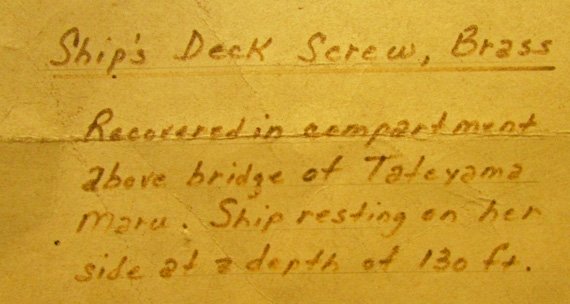 Ship's Deck Screw, Brass
Recovered in compartment
above bridge of Tateyama
Maru. Ship resting on her
side at a depth of 130 ft.